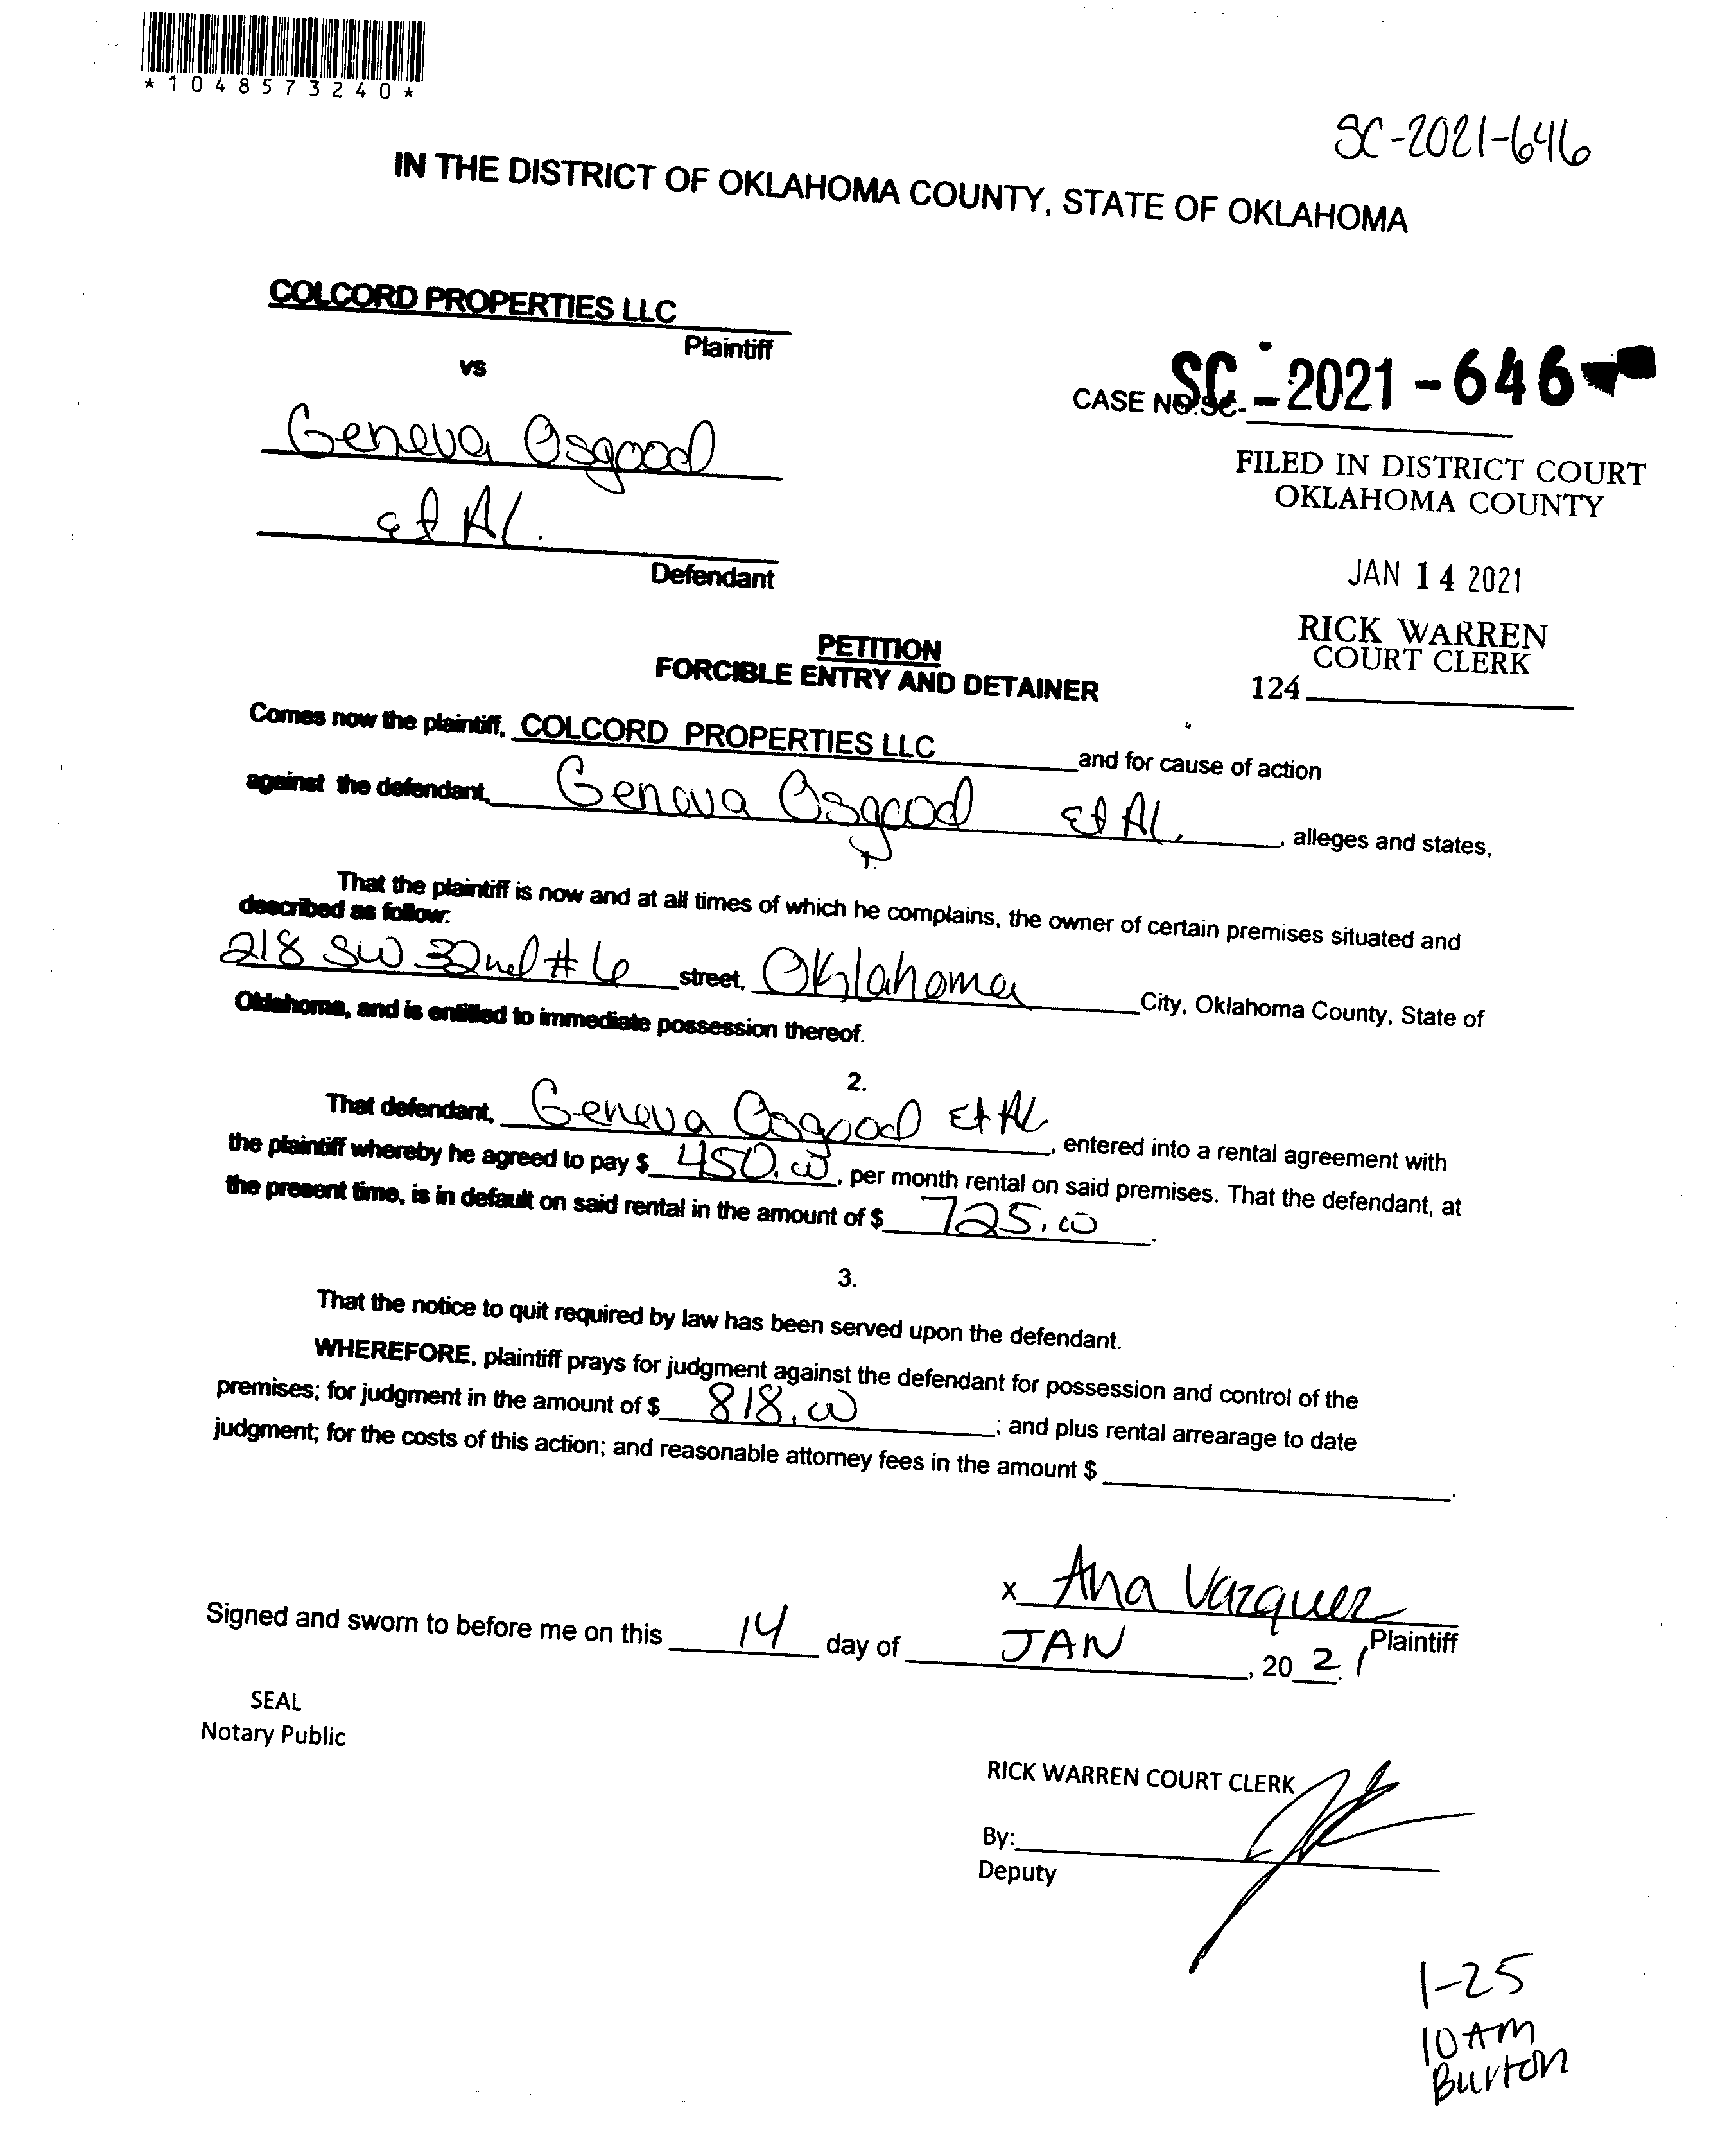 *1048573240*
SC-2021-646
IN THE DISTRICT OF OKLAHOMA COUNTY, STATE OF OKLAHOMA
COLCORD PROPERTIES LLC
Plaintiff
vs
CASE NO.SC- SC-2021-646
Geneva Osgood
et Al.
Defendant
FILED IN DISTRICT COURT
OKLAHOMA COUNTY
JAN 14 2021
RICK WARREN
COURT CLERK
124
PETITION
FORCIBLE ENTRY AND DETAINER
Comes now the plaintiff, COLCORD PROPERTIES LLC and for cause of action
against the defendant, Geneva Osgood Et Al. , alleges and states,
1.
That the plaintiff is now and at all times of which he complains, the owner of certain premises situated and
described as follow:
218 SW 32nd #6 street, Oklahoma City, Oklahoma County, State of
Oklahoma, and is entitled to immediate possession thereof.
2.
That defendant, Geneva Osgood Et Al , entered into a rental agreement with
the plaintiff whereby he agreed to pay $ 450.00 , per month rental on said premises. That the defendant, at
the present time, is in default on said rental in the amount of $ 725.00 .
3.
That the notice to quit required by law has been served upon the defendant.
WHEREFORE, plaintiff prays for judgment against the defendant for possession and control of the
premises; for judgment in the amount of $ 818.00 ; and plus rental arrearage to date
judgment; for the costs of this action; and reasonable attorney fees in the amount $ .
x Ana Vazquez
Plaintiff
Signed and sworn to before me on this 14 day of JAN , 20 21
SEAL
Notary Public
RICK WARREN COURT CLERK
By:
Deputy
1-25
10 AM
Burton